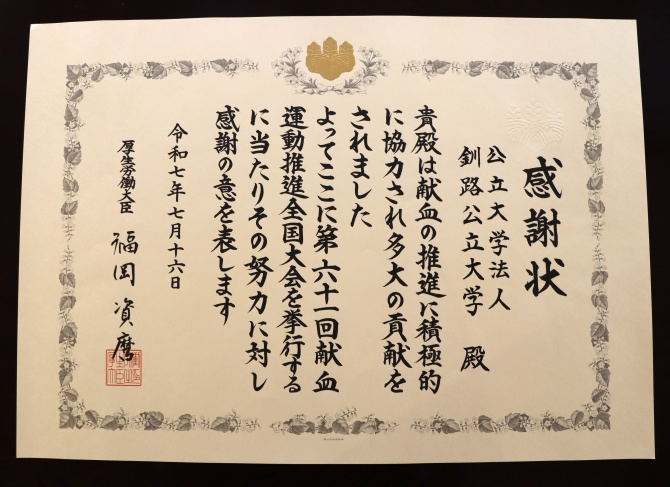 感謝状
公立大学法人
釧路公立大学 殿
貴殿は献血の推進に積極的
に協力され多大の貢献を
されました
よってここに第六十一回献血
運動推進全国大会を挙行する
に当たりその努力に対し
感謝の意を表します
令和七年七月十六日
厚生労働大臣 福岡資麿